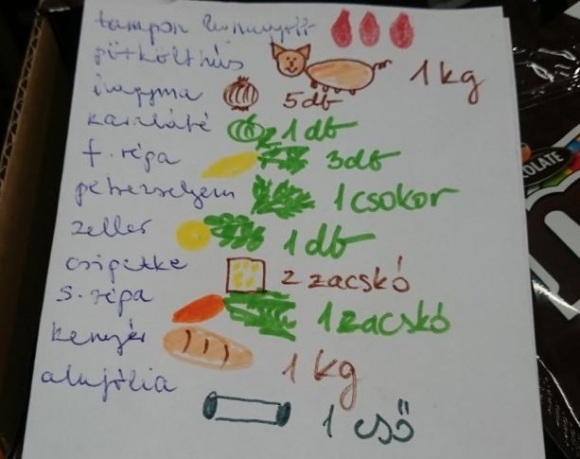 tampon
1kg
v.hagyma 5db
karalábé 1db
f. répa 3db
petrezselyem 1csokor
zeller 1db
csipetke 2 zacskó
s. répa 1zacskó
kenyér 1kg
alufólia 1 cső